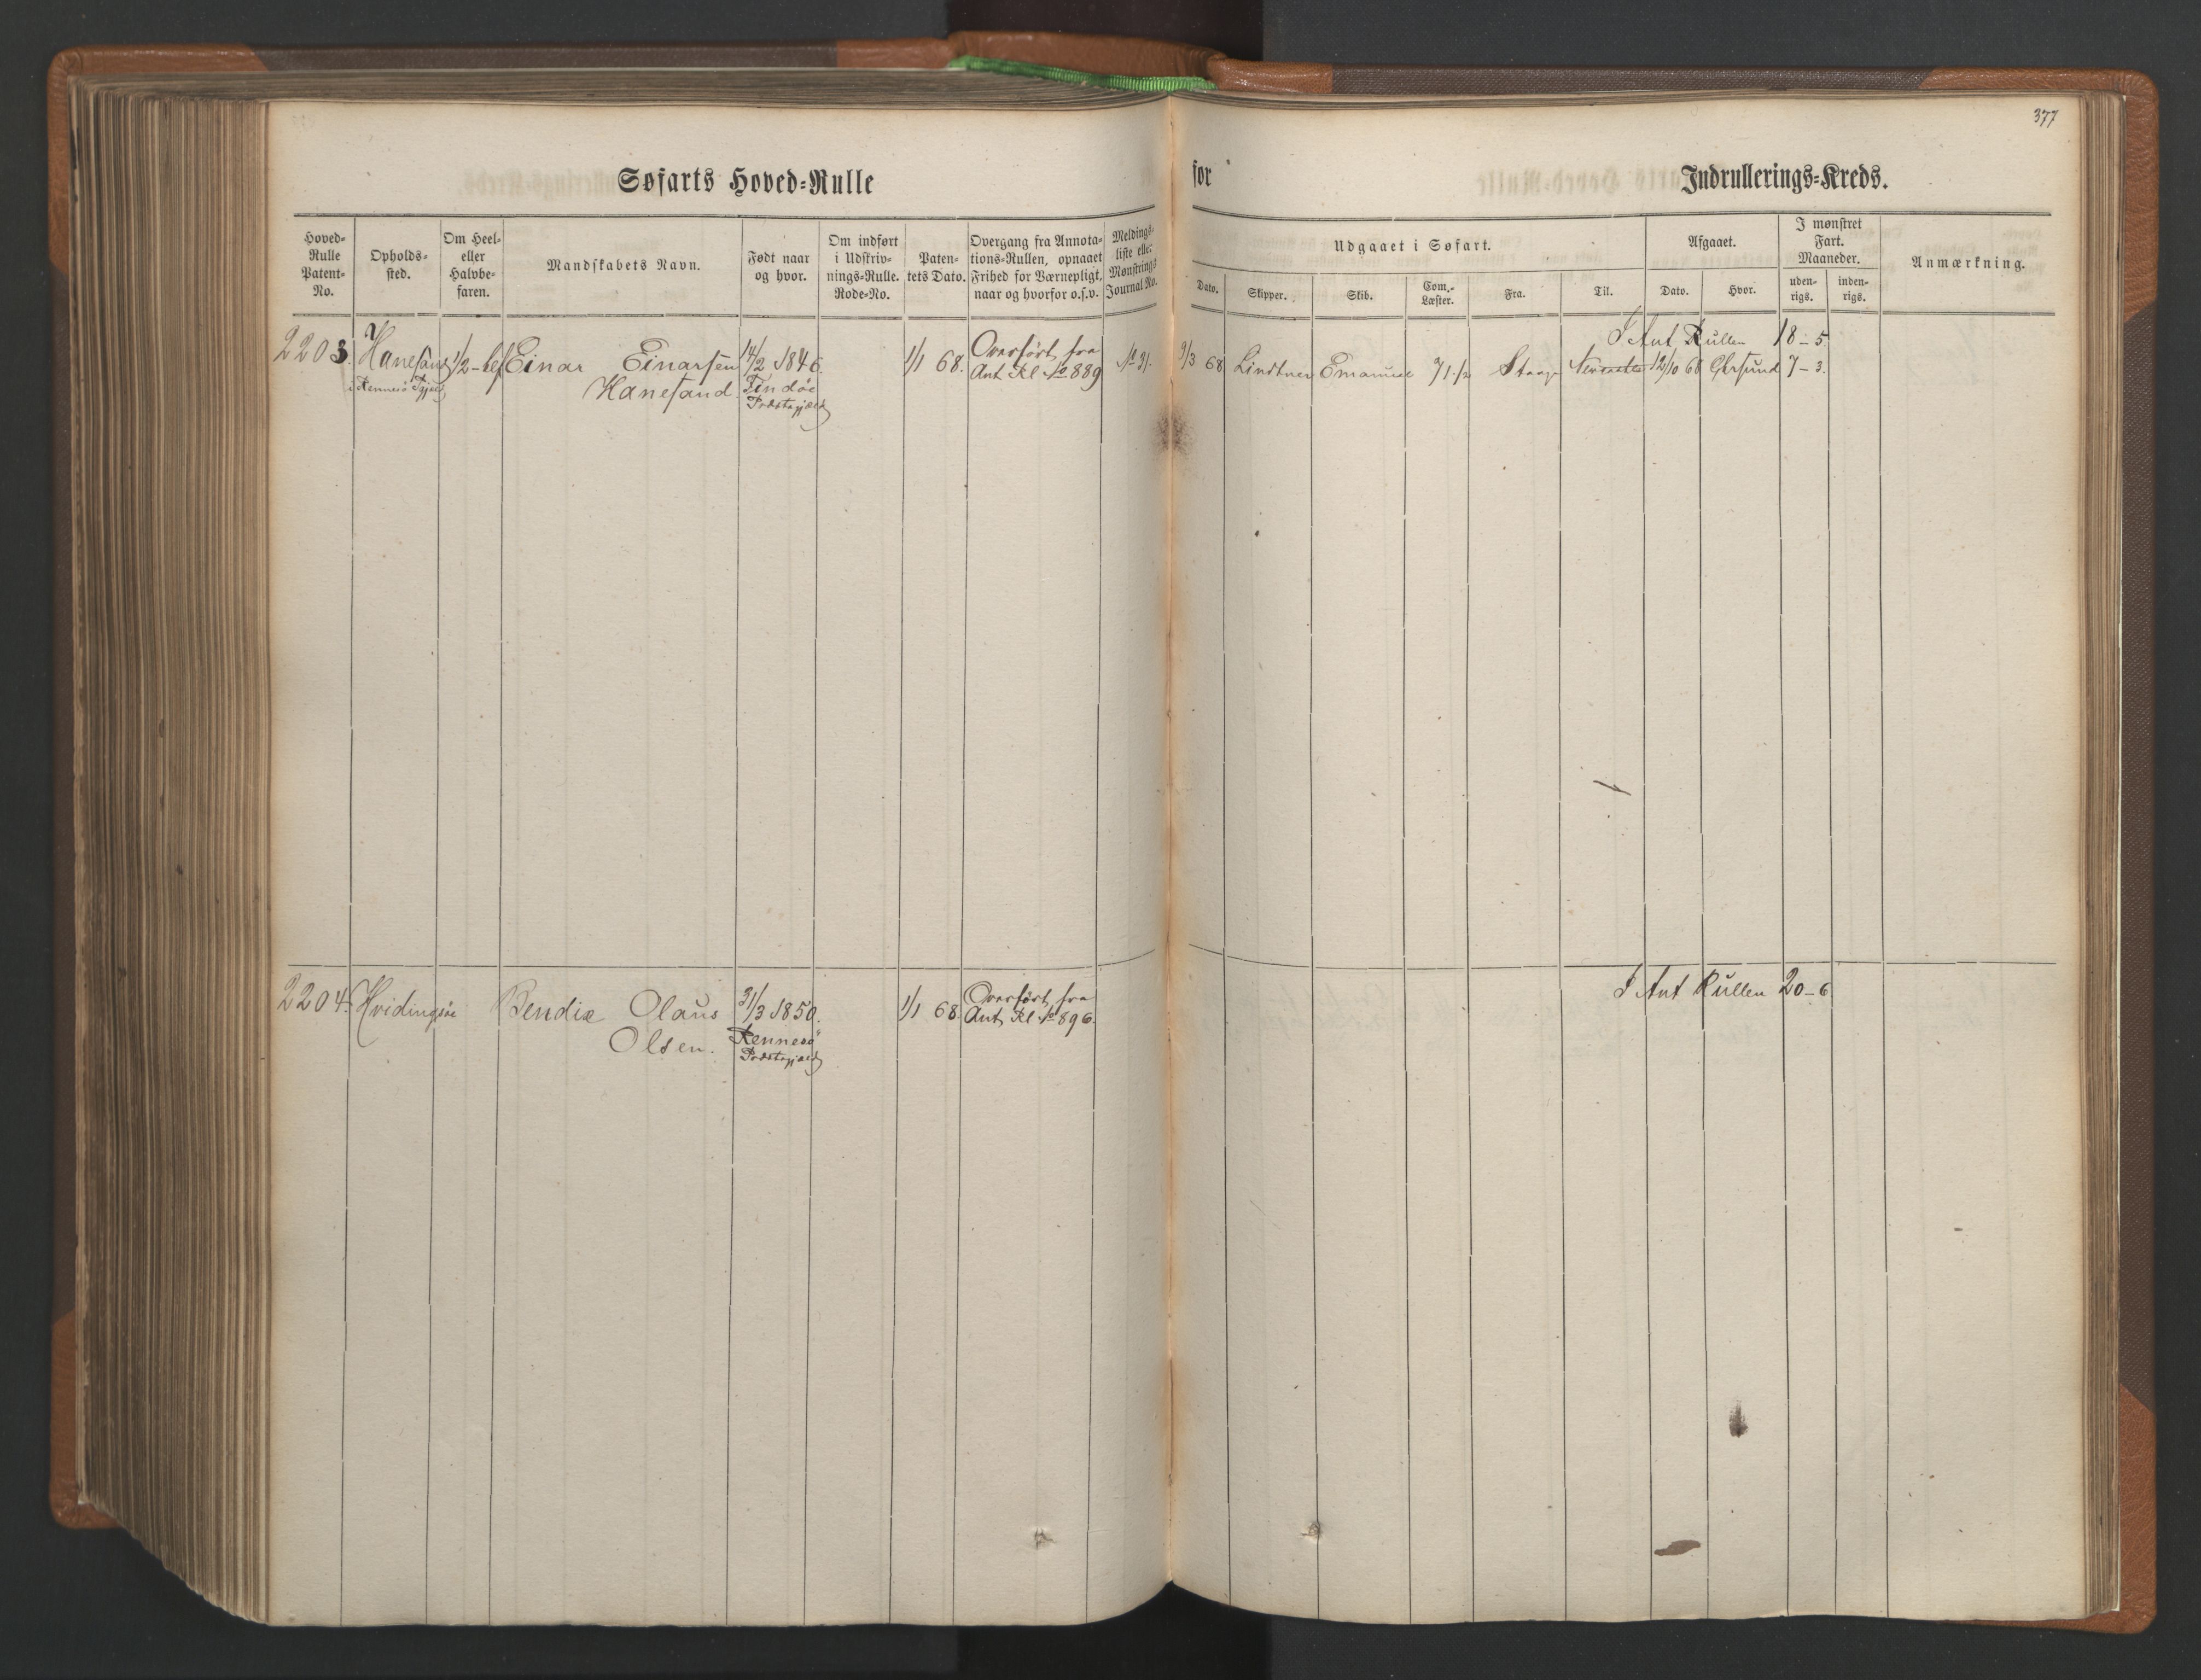 377
Søfarts Hoved=Rulle for Indrullerings=Kreds.
Hoved=
Rulle
Patent=
No.
Opholds=
sted.
Om Heel=
eller
Halvbe=
faren.
Mandskabets Navn.
Født naar
og hvor.
Om indført
i Udskriv=
nings=Rulle.
Rode=No.
Paten=
tets Dato.
Overgang fra Annota=
tions=Rullen, opnaaet
Frihed for Værnepligt,
naar og hvorfor o.s.v.
Meldings=
liste eller
Mønstrings
Journal No.
Udgaaet i Søfart.
Dato.
Skipper.
Skib.
Com.=
Læster.
Fra.
Til.
Afgaaet.
Dato.
Hvor.
I mønstret
Fart.
Maaneder.
uden=
rigs.
inden=
rigs.
Anmærkning.
I Ant Rullen 18 - 5.
2203. Hanesand 1/2 - bef Einar Einarsen 14/2 1846. 1/1 68. Overført fra No 31. 9/3 68 Lindtner Emanuel 71 1/2 12/10 68 7 - 3.
i Rennesö Hanesand. Findöe Ant Rl No 889
Præstegjæld
2204. Hvidingsöe Bendix Olaus 31/3 1850. 1/1 68. Overført fra I Ant Rullen 20 - 6
Olsen. Rennesö Ant Rl No 896.
Præstegjæld